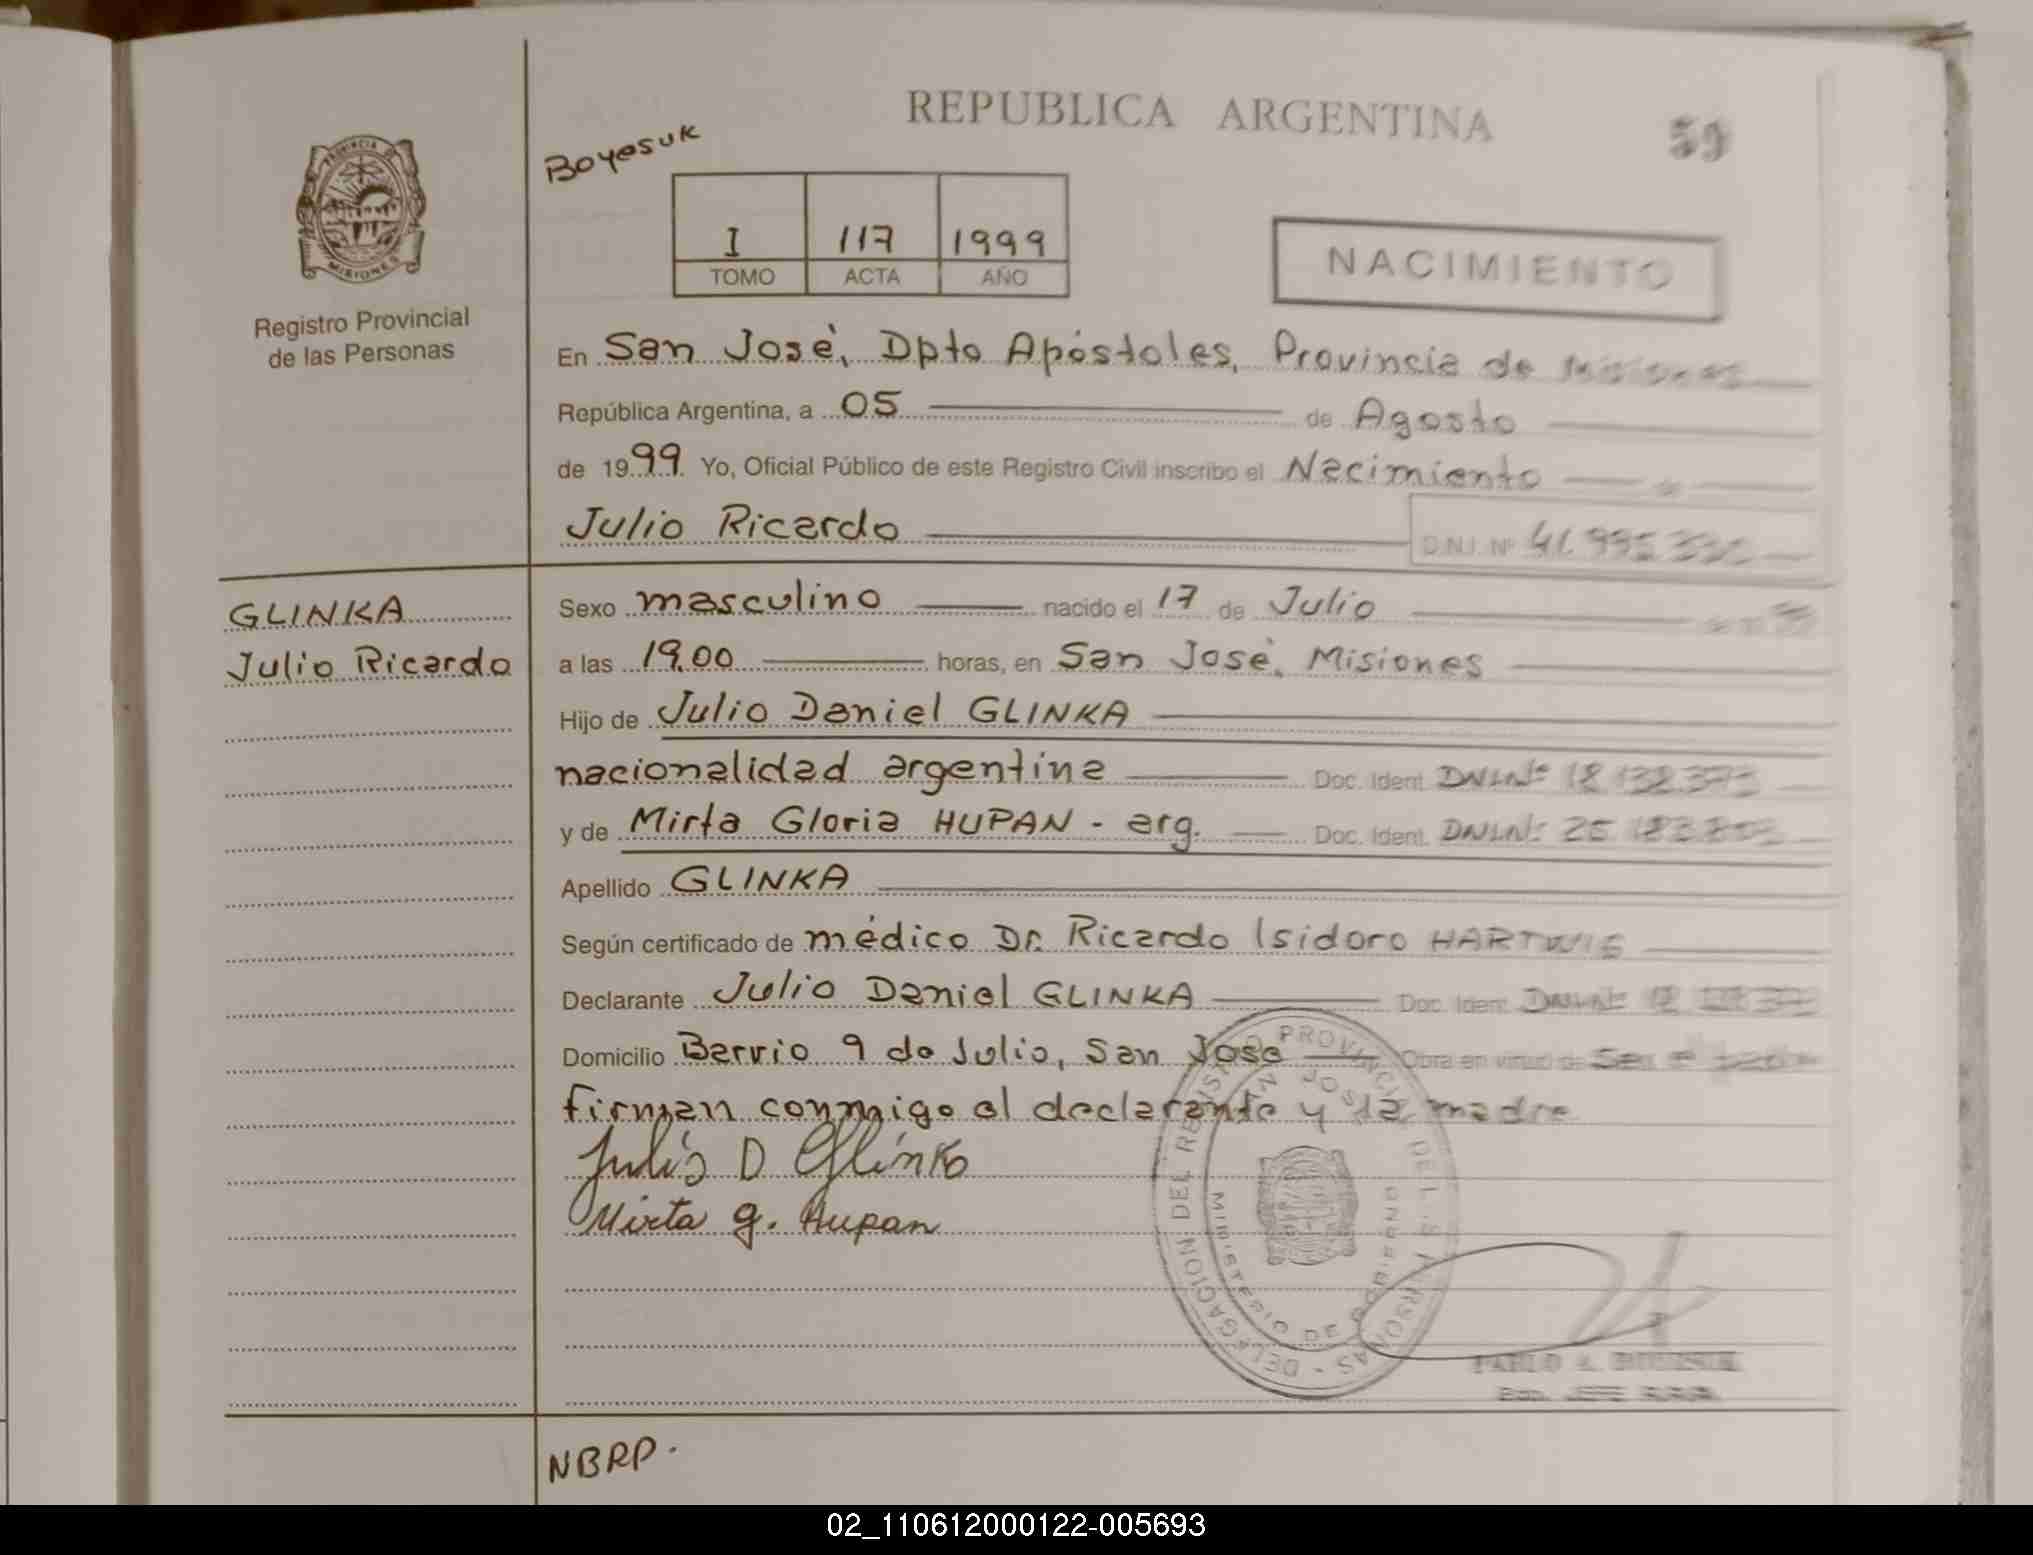 REPUBLICA ARGENTINA
59
Boyesuk
I 117 1999
TOMO ACTA AÑO
NACIMIENTO
PROVINCIA DE
MISIONES
Registro Provincial
de las Personas
En San José, Dpto Apóstoles, Provincia de Misiones
República Argentina, a 05 de Agosto
de 1999. Yo, Oficial Público de este Registro Civil inscribo el Nacimiento
Julio Ricardo D.N.I. Nº
GLINKA
Julio Ricardo
Sexo masculino nacido el 17 de Julio
a las 19.00 horas, en San José, Misiones
Hijo de Julio Daniel GLINKA
nacionalidad argentina Doc. Ident. DNI.Nº
y de Mirta Gloria HUPAN - arg. Doc. Ident. DNI.Nº
Apellido GLINKA
Según certificado de médico Dr. Ricardo Isidoro
Declarante Julio Daniel GLINKA Doc. Ident. DNI.Nº
Domicilio Barrio 9 de Julio, San José Obra en virtud de
firman conmigo el declarante y la madre
Julio D Glinka
Mirta G. Hupan
DELEGACION DEL REGISTRO PROVINCIAL DE LAS PERSONAS
SAN JOSE
MINISTERIO DE GOBIERNO
NBRP.
02_110612000122-005693